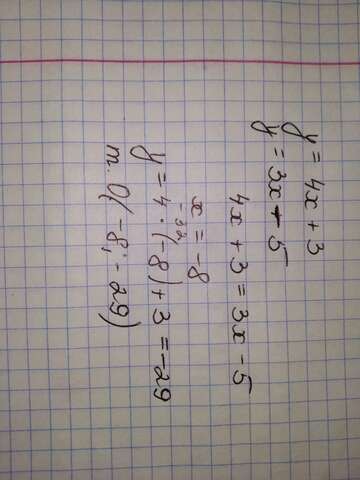 y = 4x + 3
y = 3x - 5
4x + 3 = 3x - 5
x = -8
-32
y = 4 · (-8) + 3 = -29
т. O(-8; -29)